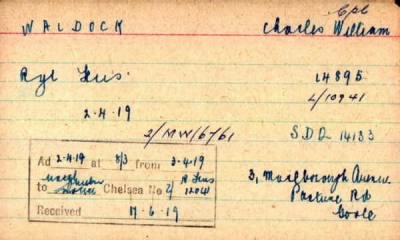 Cpl
WALDOCK Charles William
Ryl Fus. 14895
L/10941
2.4.19
2/MW/6761 SDD 14133
Ad 2.4.19 at 8/3 from 3.4.19
to Chelsea No 2/ R Fus
12041
Received 17.6.19
3, Marlborough Avenue.
Pasture Rd
Goole